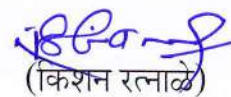 (किशन रत्नाळे)